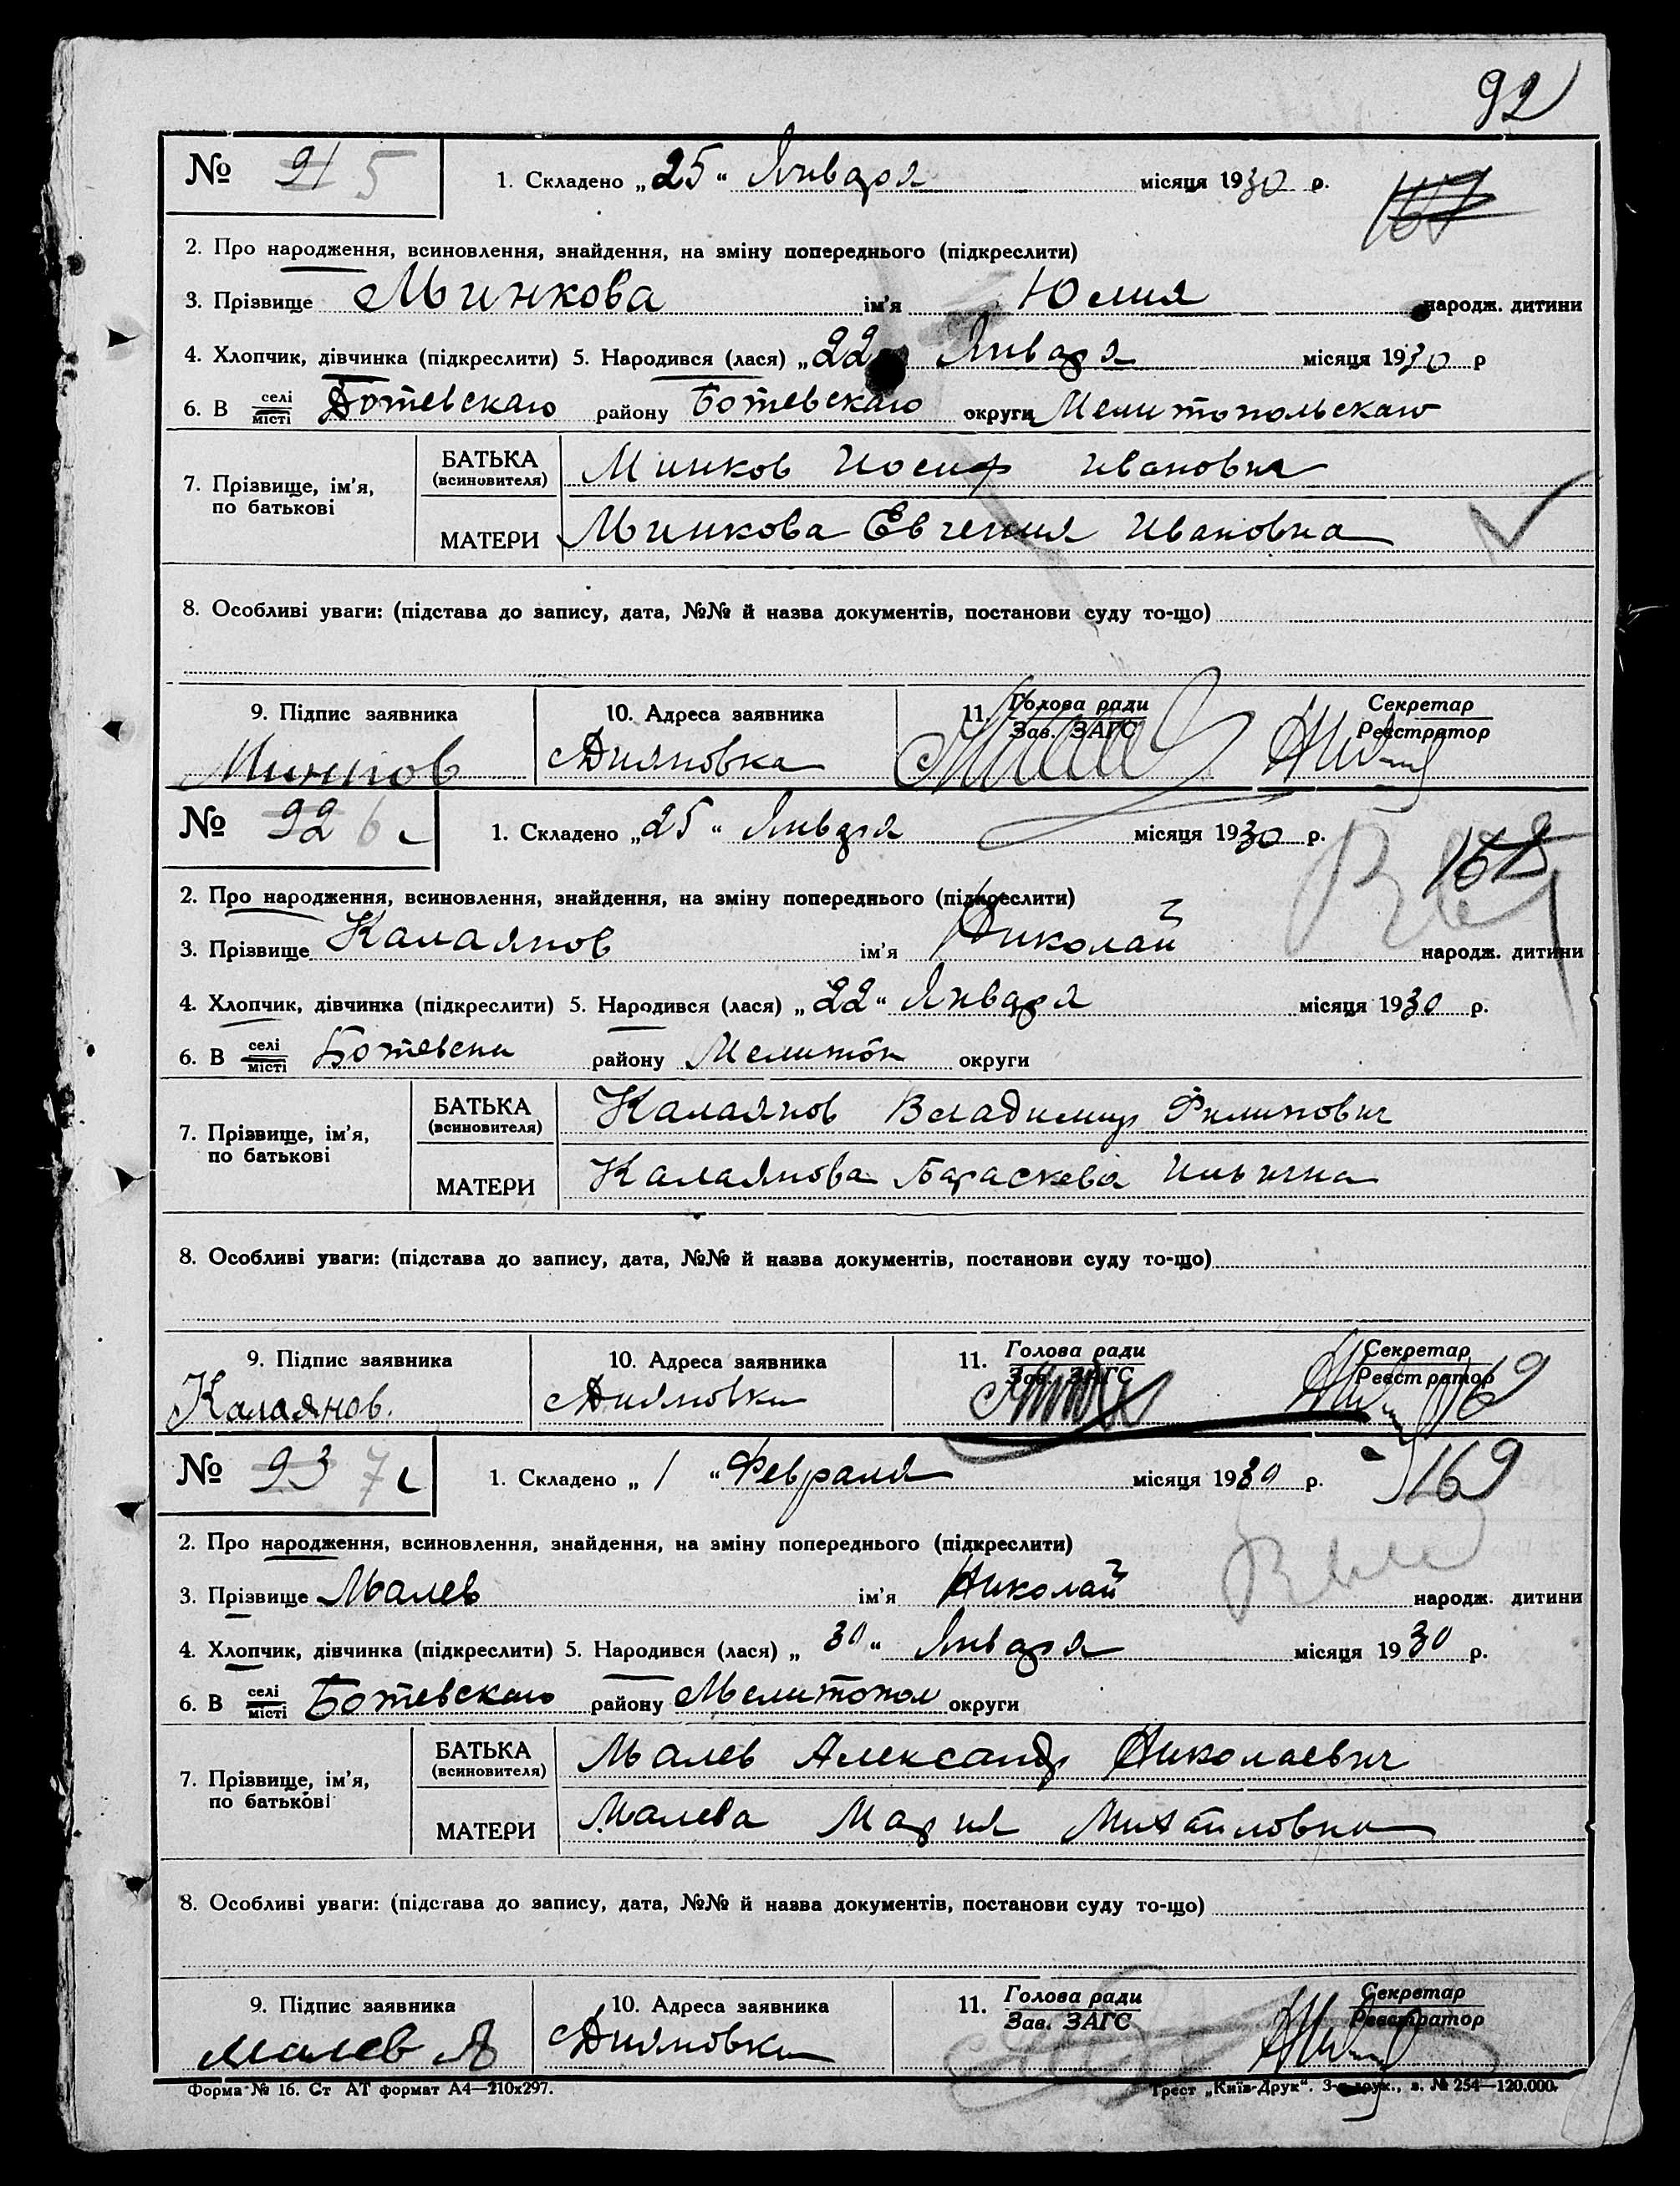 92
№ 91 5
1. Складено „25“ Января місяця 1930 р.
167
2. Про народження, всиновлення, знайдення, на зміну попереднього (підкреслити)
3. Прізвище Минкова ім'я Юлия народж. дитини
4. Хлопчик, дівчинка (підкреслити) 5. Народився (лася) „22 Января місяця 1930 р
6. В селі місті Ботевскаго району Ботевскаго округи Мелитопольскаго
7. Прізвище, ім'я, по батькові
БАТЬКА (всиновителя) Минков Иосиф Иванович
МАТЕРИ Минкова Евгения Ивановна
8. Особливі уваги: (підстава до запису, дата, №№ й назва документів, постанови суду то-що)
9. Підпис заявника 10. Адреса заявника 11. Голова ради Зав. ЗАГС Секретар Реєстратор
Минков Дияновка
№ 92 6
1. Складено „25“ Января місяця 1930 р.
168
2. Про народження, всиновлення, знайдення, на зміну попереднього (підкреслити)
3. Прізвище Калаянов ім'я Николай народж. дитини
4. Хлопчик, дівчинка (підкреслити) 5. Народився (лася) „22“ Января місяця 1930 р.
6. В селі місті Ботевски району Мелитоп округи
7. Прізвище, ім'я, по батькові
БАТЬКА (всиновителя) Калаянов Владимир Филипович
МАТЕРИ Калаянова Параскева Ильична
8. Особливі уваги: (підстава до запису, дата, №№ й назва документів, постанови суду то-що)
9. Підпис заявника 10. Адреса заявника 11. Голова ради Зав. ЗАГС Секретар Реєстратор
Калаянов. Дияновка 169
№ 93 7
1. Складено „1“ Февраля місяця 1930 р.
169
2. Про народження, всиновлення, знайдення, на зміну попереднього (підкреслити)
3. Прізвище Малев ім'я Николай народж. дитини
4. Хлопчик, дівчинка (підкреслити) 5. Народився (лася) „30“ Января місяця 1930 р.
6. В селі місті Ботевскаго району Мелитопол округи
7. Прізвище, ім'я, по батькові
БАТЬКА (всиновителя) Малев Александр Николаевич
МАТЕРИ Малева Мария Михайловна
8. Особливі уваги: (підстава до запису, дата, №№ й назва документів, постанови суду то-що)
9. Підпис заявника 10. Адреса заявника 11. Голова ради Зав. ЗАГС Секретар Реєстратор
Малев А Дияновка
Форма № 16. Ст АТ формат А4—210х297. Трест „Київ-Друк“. 3-я друк., з. № 254—120.000.